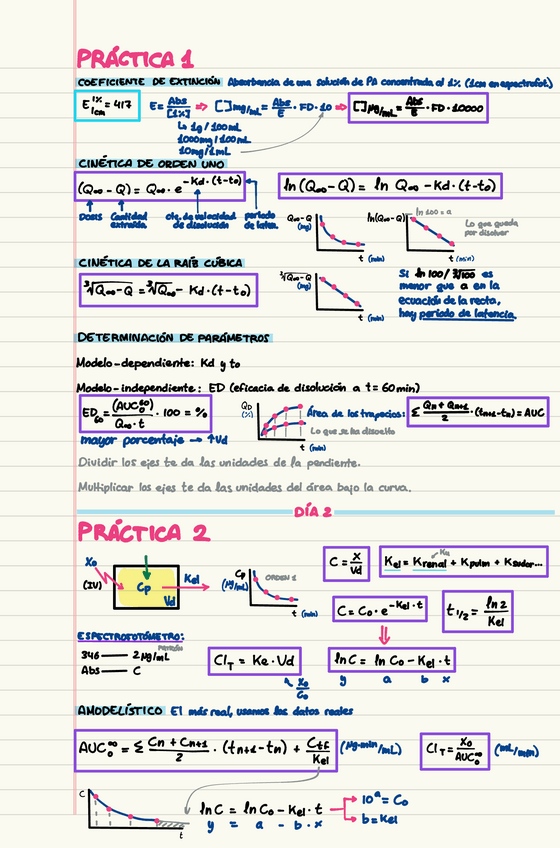 PRÁCTICA 1
COEFICIENTE DE EXTINCIÓN Absorbancia de una solución de PA concentrada al 1% (1cm en espectrofot.)
E 1% 1cm = 417 E = Abs / [1%] ⇒ [ ] mg/mL = Abs / E · FD · 10 ⇒ [ ] µg/mL = Abs / E · FD · 10000
↳ 1g / 100mL
1000mg / 100mL
10mg / 1mL
CINÉTICA DE ORDEN UNO
(Q∞ - Q) = Q∞ · e^-Kd·(t-t₀) ln (Q∞ - Q) = ln Q∞ - Kd · (t-t₀)
DOSIS Cantidad extraída cte. de velocidad de disolución período de laten.
Q∞-Q (mg) t (min) ln(Q∞-Q) ln 100 = a t (min) Lo que queda por disolver
CINÉTICA DE LA RAÍZ CÚBICA
∛Q∞-Q = ∛Q∞ - Kd · (t-t₀)
∛Q∞-Q (mg) t (min)
Si ln 100 / ∛100 es
menor que a en la
ecuación de la recta,
hay período de latencia.
DETERMINACIÓN DE PARÁMETROS
Modelo-dependiente: Kd y t₀
Modelo-independiente: ED (eficacia de disolución a t = 60min)
ED₆₀ = (AUC₀⁶⁰) / Q∞ · t · 100 = % QD (%) t (min) Área de los trapecios: Σ Qn + Qn+1 / 2 · (tn+1 - tn) = AUC
Lo que se ha disuelto
mayor porcentaje → ↑Vd
Dividir los ejes te da las unidades de la pendiente.
Multiplicar los ejes te da las unidades del área bajo la curva.
DÍA 2
PRÁCTICA 2
X₀ (IV) Cp Vd Kel
Cp (µg/mL) ORDEN 1 t (min)
C = X / Vd Kel = Krenal + Kpulm + Ksudor...
Ku
C = C₀ · e^-Kel·t t 1/2 = ln 2 / Kel
ESPECTROFOTÓMETRO:
PATRÓN
346 — 2 µg/mL
Abs — C
Cl T = Ke · Vd ln C = ln C₀ - Kel · t
X₀ / C₀ y a b x
AMODELÍSTICO El más real, usamos los datos reales
AUC₀^∞ = Σ Cn + Cn+1 / 2 · (tn+1 - tn) + Ctf / Kel (µg·min/mL) Cl T = X₀ / AUC₀^∞ (mL/min)
C t
ln C = ln C₀ - Kel · t → 10ᵃ = C₀
y = a - b · x → b = Kel